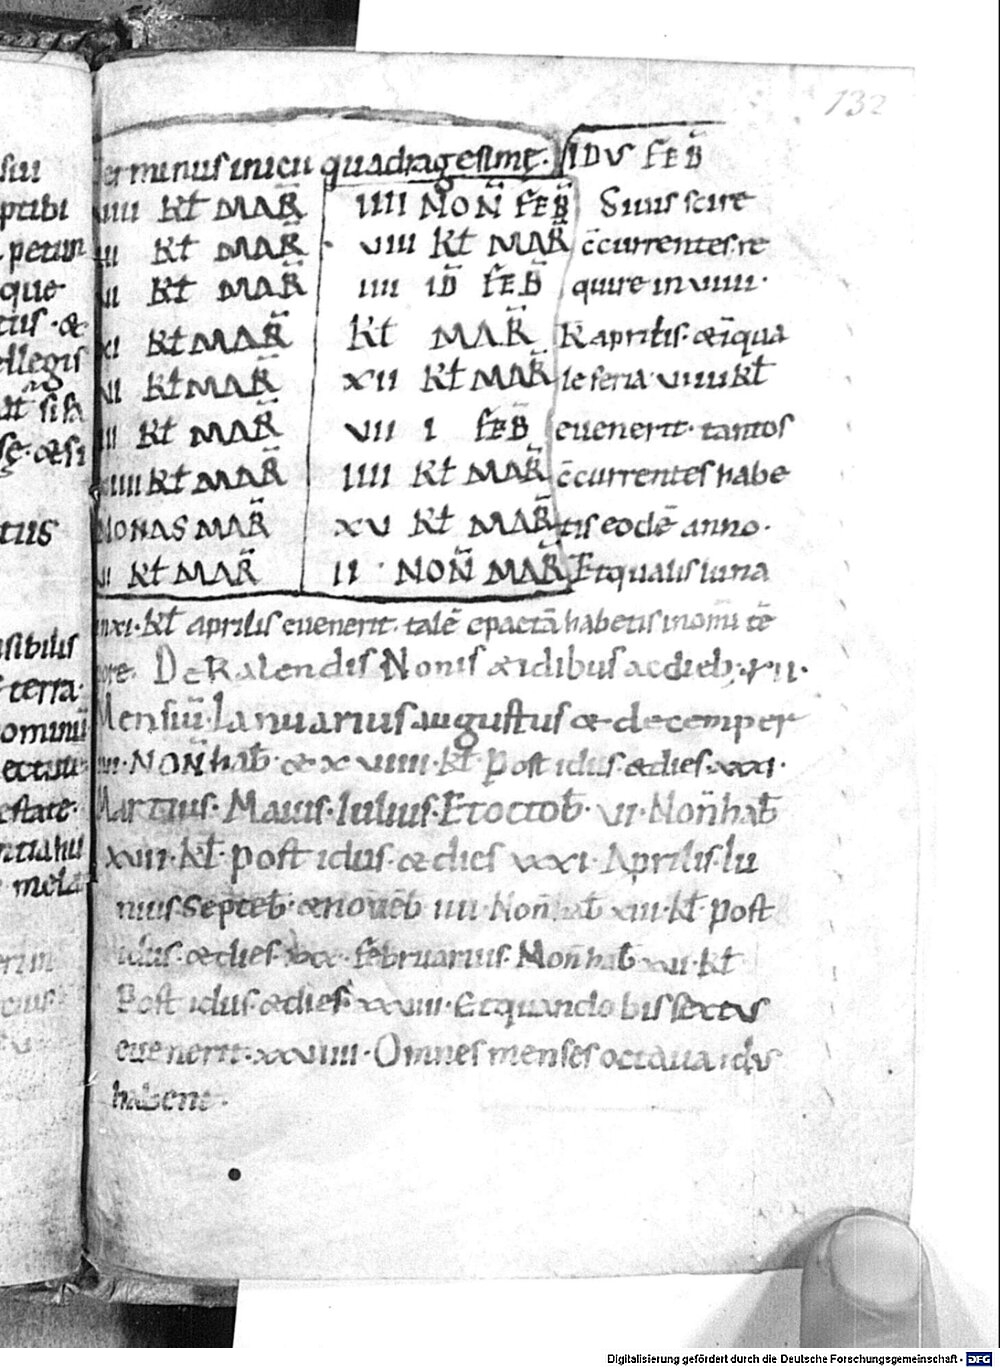 132
terminus inicii quadragesimę. IDVS FEB̄
IIII Kł MAR̄ IIII NON̄ FEB̄ Si uis scire
III Kł MAR̄ VIII Kł MAR̄ c̄currentes re
VII Kł MAR̄ IIII ID̄ FEB̄ quire in VIIII·
XI Kł MAR̄ Kł MAR̄ K̄ aprilis· & ī qua
VI Kł MAR̄ XII Kł MAR̄ le feria VIIII Kł
III Kł MAR̄ VII I FEB̄ euenerit· tantos
IIII Kł MAR̄ IIII Kł MAR̄ c̄currentes habe
NONAS MAR̄ XV Kł MAR̄ tis eodē anno·
VII Kł MAR̄ II · NON̄ MAR̄ Et qualis luna
in XI· Kł aprilis euenerit· talē epactā habetis in omni tē
pore. De Kalendis Nonis & idibus ac dieb;· XII·
Mensiū· Ianuarius augustus & decemper
IIII· NON̄ hab̄· & XVIIII· Kł post idus & dies XXXI·
Martius· Maius· Iulius· Et octob̄· VI· Non̄ hab̄
XVII· Kł· post idus· & dies XXXI· Aprilis· Iu
nius Septeb̄· & nouēb̄ IIII· Non̄ hab̄ XIII· Kł· post
idus· & dies· XXX· februarius· Non̄ hab̄ XVI· Kł
Post idus & dies XXVIII· Et quando bissextus
euenerit· XXVIIII· Omnes menses octaua idus
habent·
sui
petun
que
&
ellegis
tus
sibilis
terra·
ominū
estate·
Digitalisierung gefördert durch die Deutsche Forschungsgemeinschaft - DFG